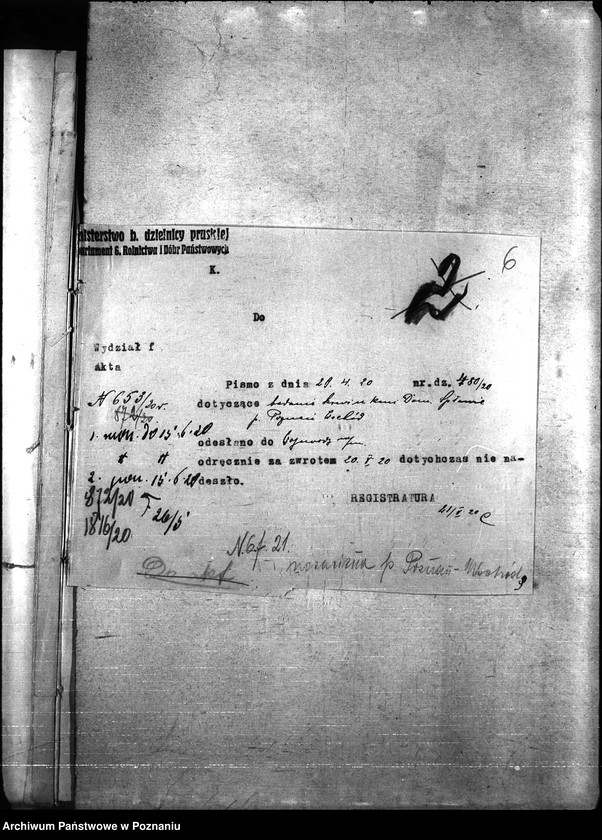 nisterstwo b. dzielnicy pruskiej
artament 6. Rolnictwa i Dóbr Państwowych
K.
6
Do
Wydział f
Akta
Pismo z dnia 29.4.20 nr.dz. 480/20
N 653/20
dotyczące badania Dom.
872/20
p. Poznań
1. mon. do 15.6.20
odesłano do
" "
odręcznie za zwrotem 20.V.20 dotychczas nie na-
2. mon. 15.6.20
deszło.
872/20
REGISTRATURA
1816/20
26/5
21/V 20
N. 6 f. 21.
p Poznań-Wschód
Archiwum Państwowe w Poznaniu